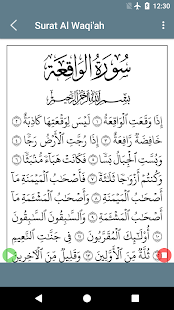 12:30
Surat Al Waqi'ah
سُورَةُ الوَاقِعَةِ
بِسْمِ اللَّهِ الرَّحْمَٰنِ الرَّحِيمِ
إِذَا وَقَعَتِ الْوَاقِعَةُ ۝١ لَيْسَ لِوَقْعَتِهَا كَاذِبَةٌ ۝٢
خَافِضَةٌ رَافِعَةٌ ۝٣ إِذَا رُجَّتِ الْأَرْضُ رَجًّا ۝٤
وَبُسَّتِ الْجِبَالُ بَسًّا ۝٥ فَكَانَتْ هَبَاءً مُنْبَثًّا ۝٦
وَكُنْتُمْ أَزْوَاجًا ثَلَاثَةً ۝٧ فَأَصْحَابُ الْمَيْمَنَةِ مَا
أَصْحَابُ الْمَيْمَنَةِ ۝٨ وَأَصْحَابُ الْمَشْئَمَةِ مَا
أَصْحَابُ الْمَشْئَمَةِ ۝٩ وَالسَّابِقُونَ السَّابِقُونَ
۝١٠ أُولَٰئِكَ الْمُقَرَّبُونَ ۝١١ فِي جَنَّاتِ النَّعِيمِ
۝١٢ ثُلَّةٌ مِنَ الْأَوَّلِينَ ۝١٣ وَقَلِيلٌ مِنَ الْآخِرِينَ